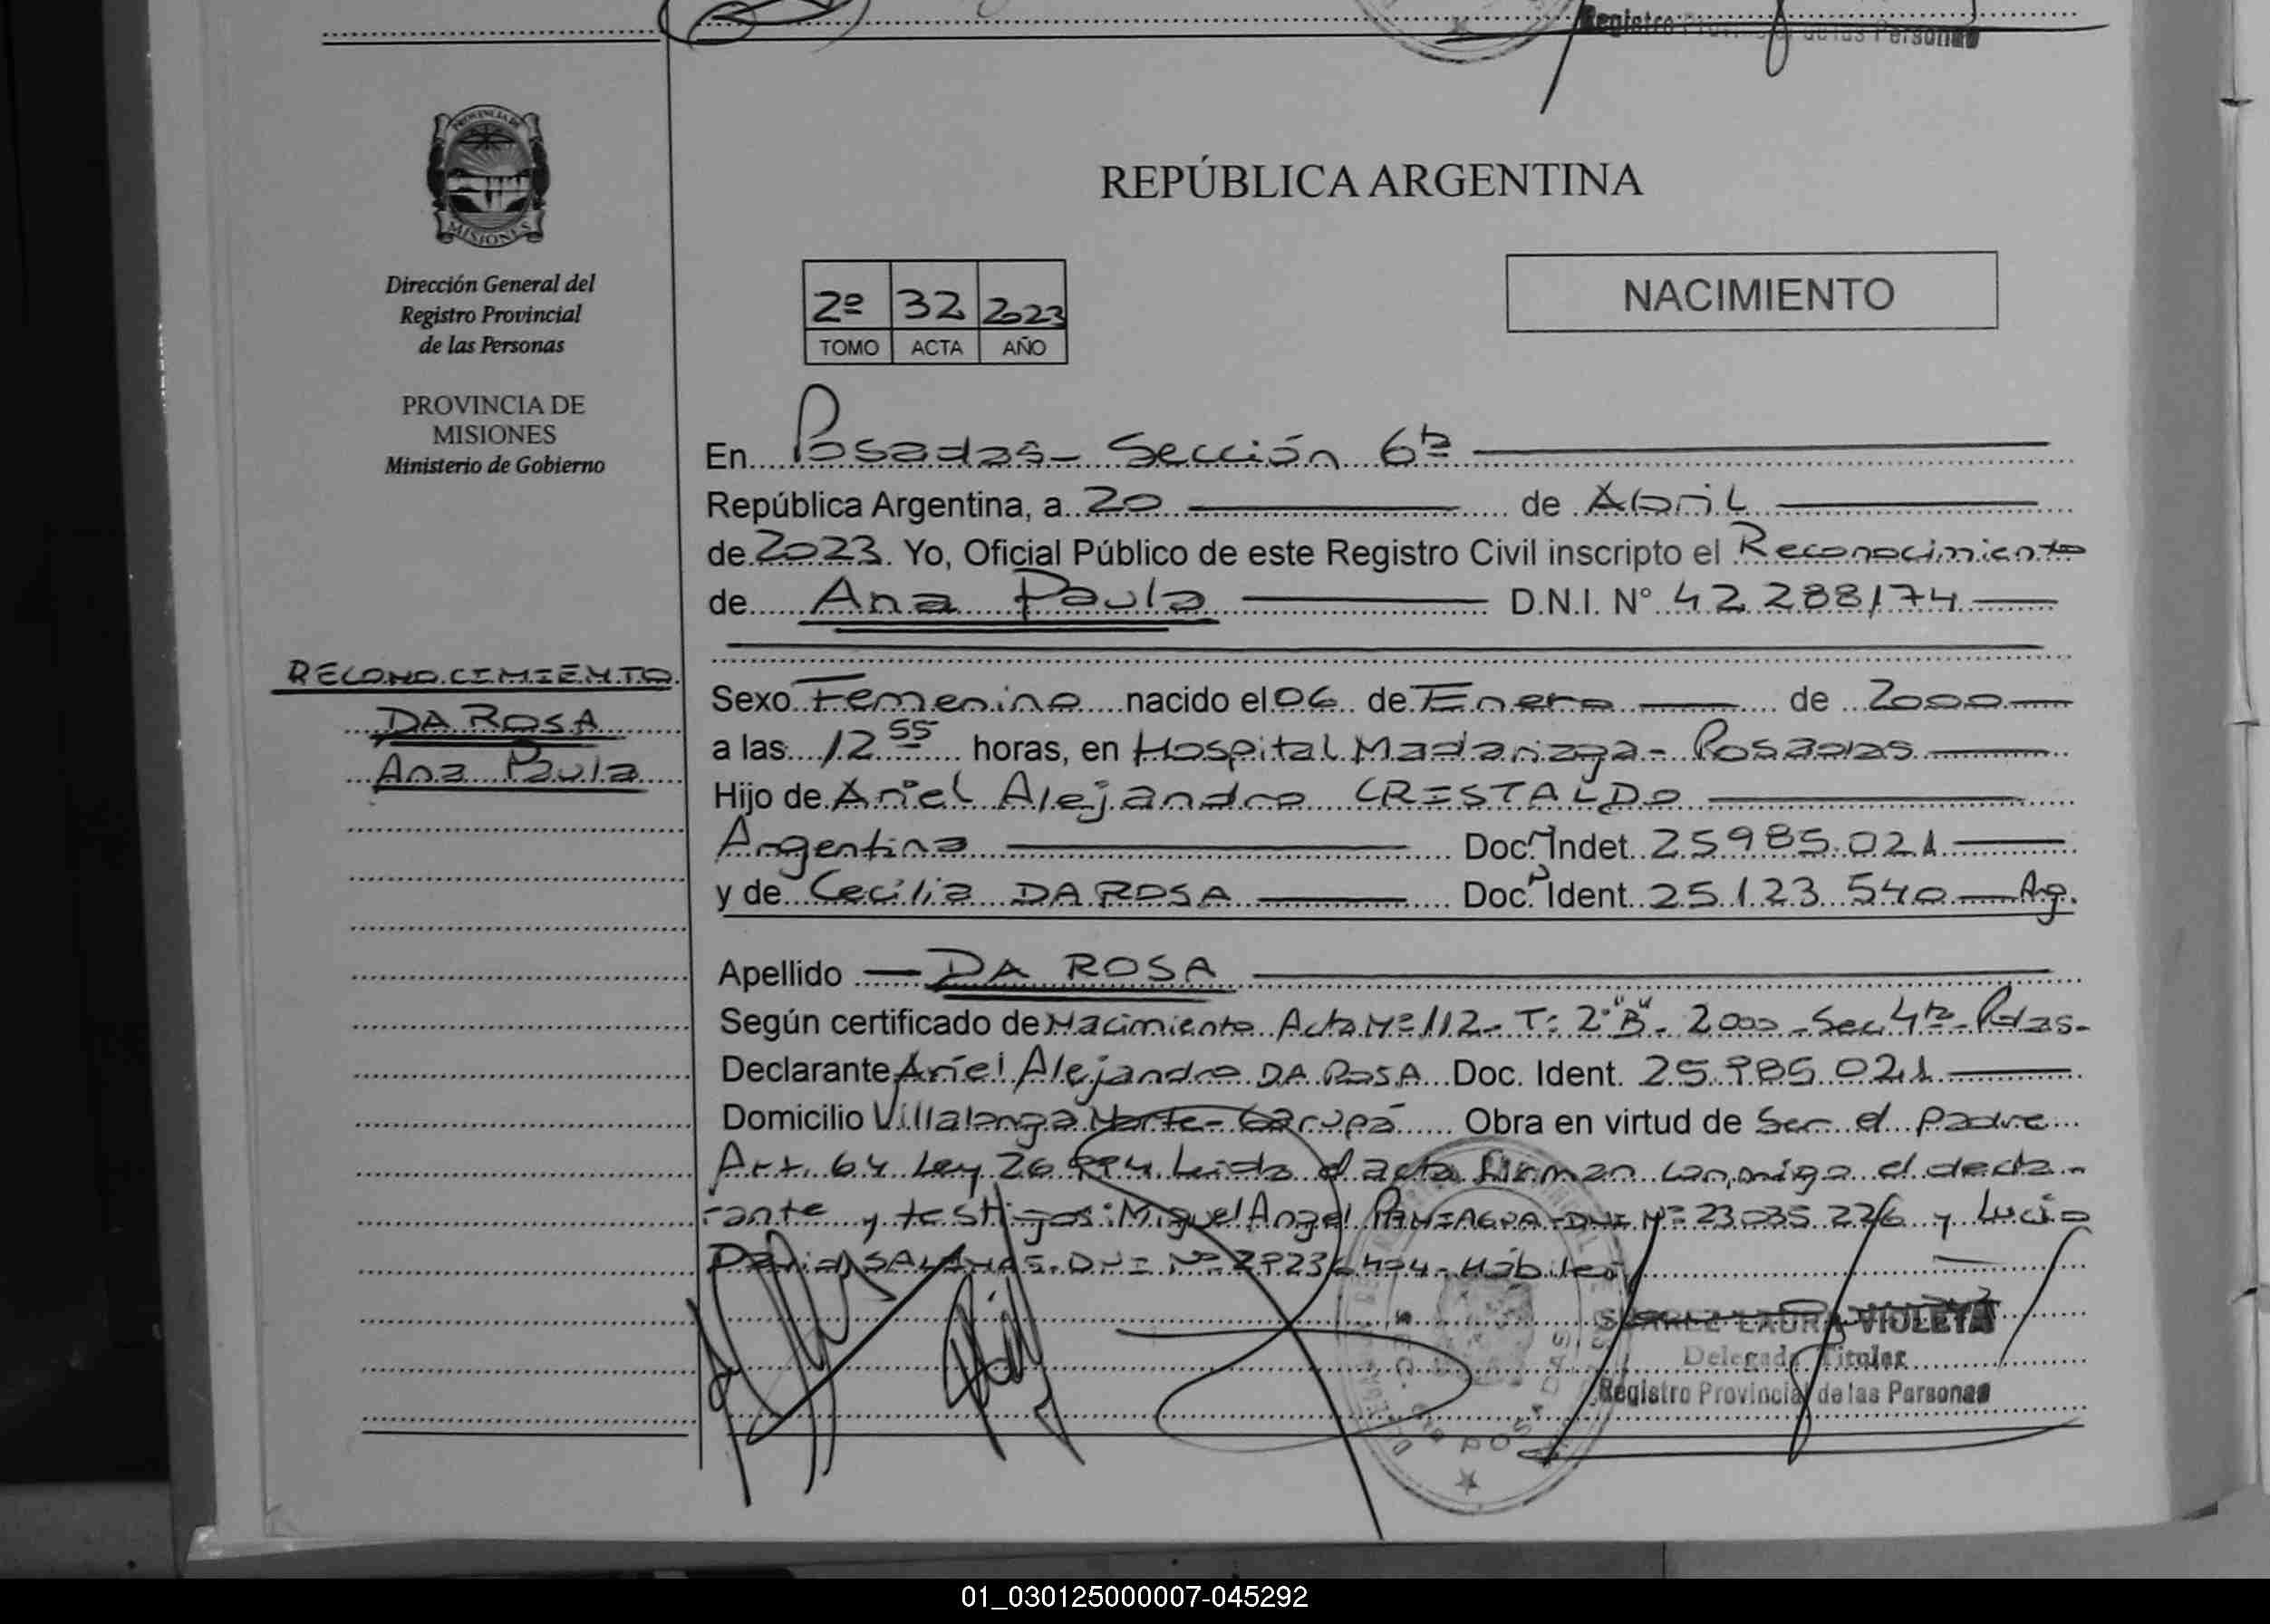 Registro Provincial de las Personas
PROVINCIA DE
MISIONES
Dirección General del
Registro Provincial
de las Personas
PROVINCIA DE
MISIONES
Ministerio de Gobierno
RECONOCIMIENTO
DA ROSA
Ana Paula
REPÚBLICA ARGENTINA
2º 32 2023
TOMO ACTA AÑO
NACIMIENTO
En Posadas - Sección 6ta
República Argentina, a 20 de Abril
de 2023. Yo, Oficial Público de este Registro Civil inscripto el Reconocimiento
de Ana Paula D.N.I. Nº 42.288174
Sexo Femenino nacido el 06 de Enero de 2000
a las 12 55 horas, en Hospital Madariaga - Posadas
Hijo de Ariel Alejandro CRISTALDO
Argentina Doc. Indet. 25985.021
y de Cecilia DA ROSA Doc. Ident. 25.123.540 Arg.
Apellido DA ROSA
Según certificado de Nacimiento Acta Nº 112 - T: 2º "B" - 2000 - Sec 4ta - Pdas -
Declarante Ariel Alejandro DA ROSA Doc. Ident. 25.985.021
Domicilio Villalonga Norte - Garupá Obra en virtud de Ser el padre
Art. 64 Ley 26.994. Leida el acta firman conmigo el decla-
rante y testigos: Miguel Angel PANIAGUA - DNI Nº 23.035.226 y Lucio
DNI Nº Hábiles
SUAREZ LAURA VIOLETA
Delegada Titular
Registro Provincial de las Personas
POSADAS
01_030125000007-045292